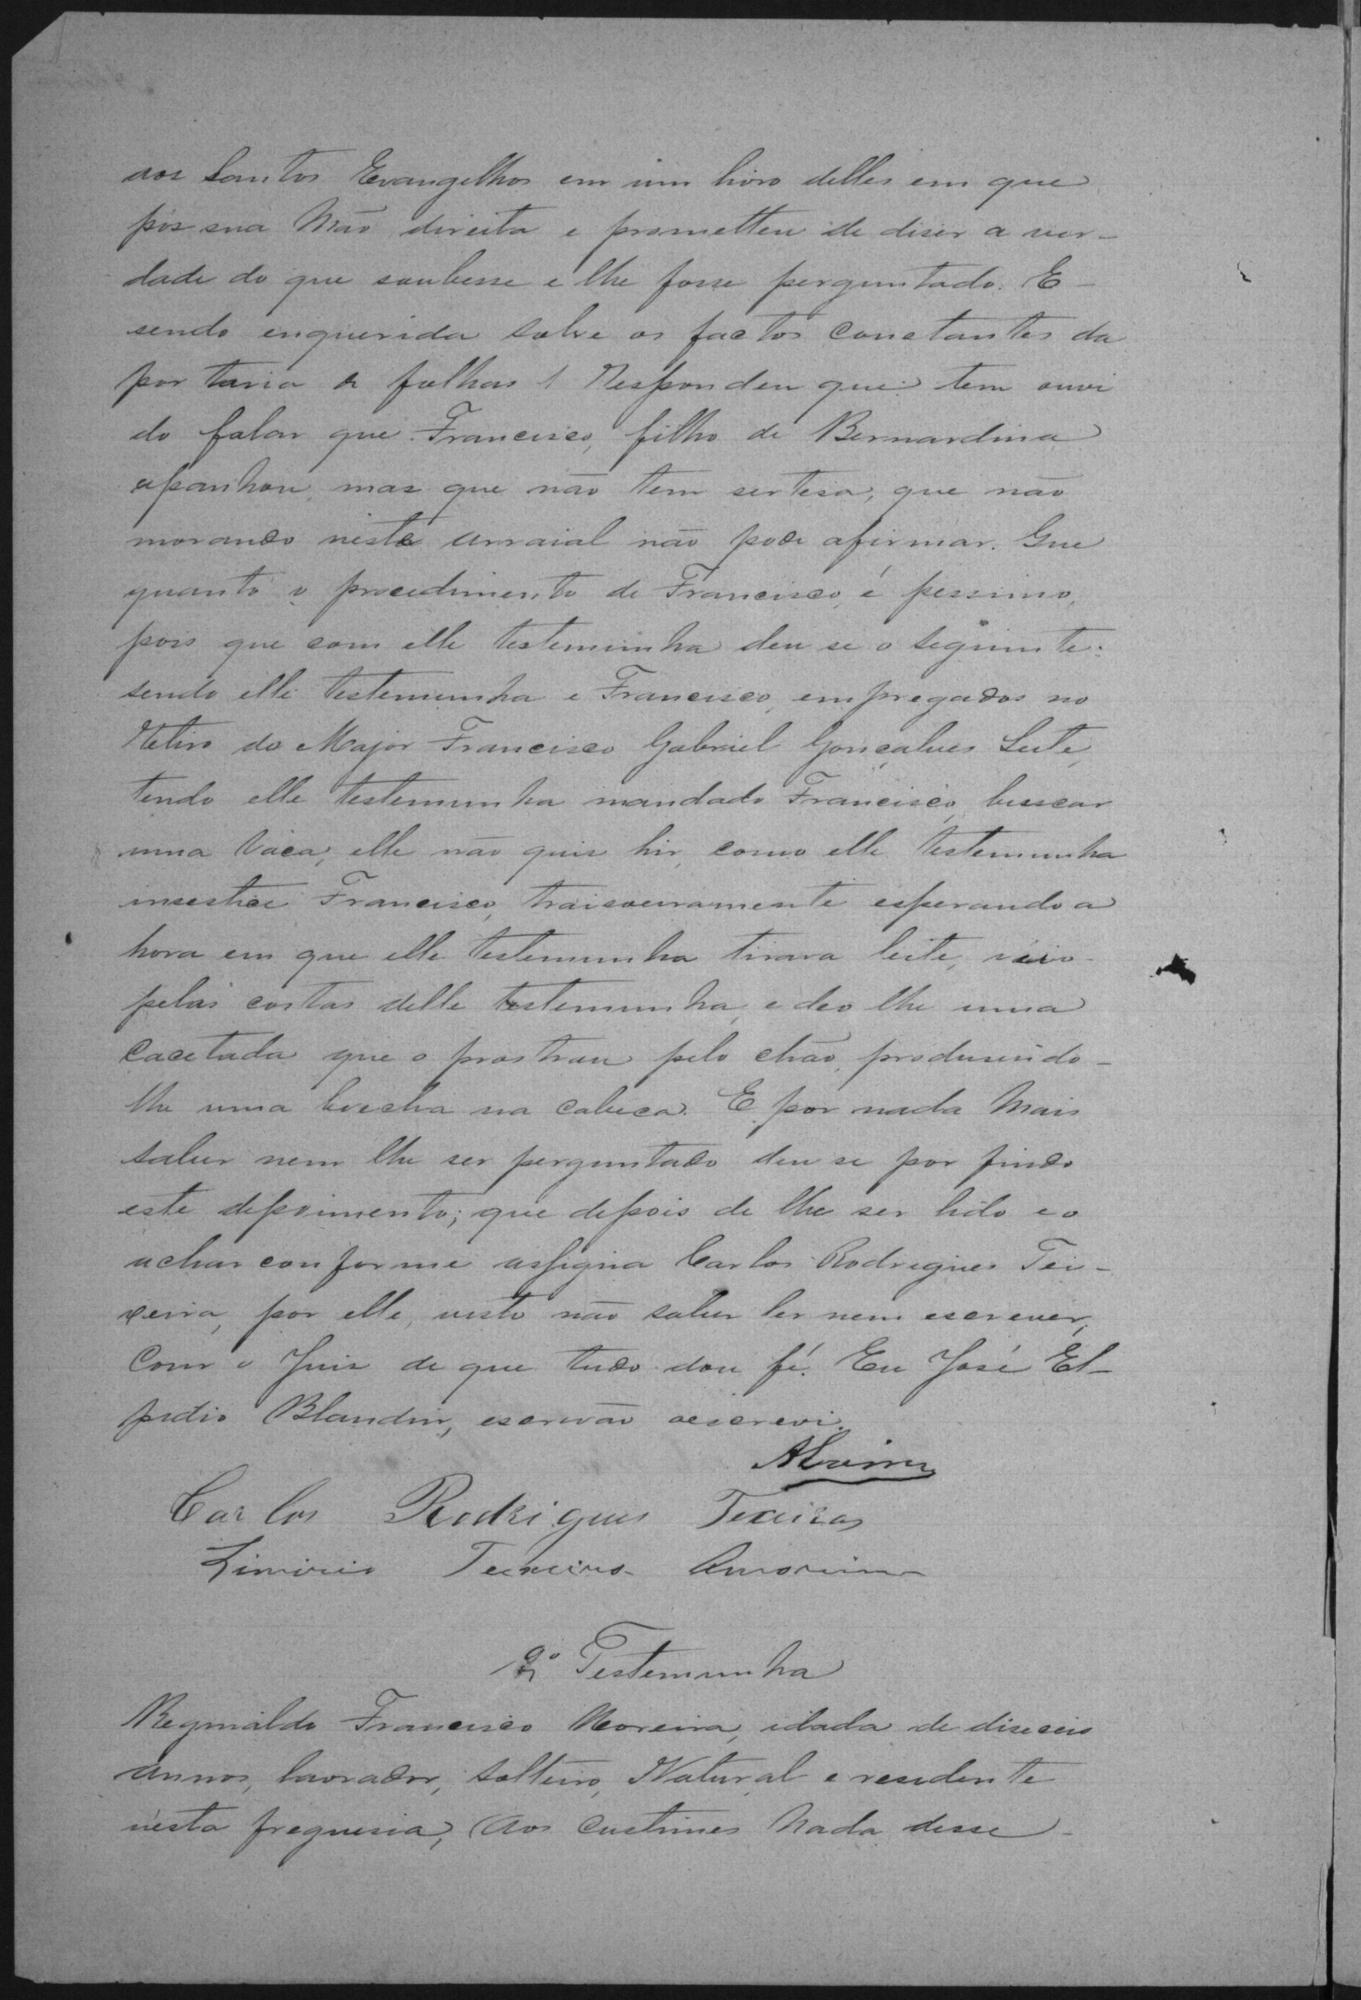 aos Santos Evangelhos em um livro delles em que
pôs sua Mão direita e prometteu de diser a ver-
dade do que soubesse e lhe fosse perguntado. E
sendo enquerida sobre os factos constantes da
portaria a folhas 1 Respondeu que: tem ouvi
do falar que Francisco, filho de Bernardina
apanhou, mas que não tem sertesa, que não
morando neste arraial não pode afirmar. Que
quanto o procedimento de Francisco, é pessimo,
pois que com elle testemunha deu se o seguinte:
sendo elle testemunha e Francisco, empregados no
Retiro do Major Francisco Gabriel Gonçalves Leite,
tendo elle testemunha mandado Francisco, buscar
uma Vaca, elle não quis hir, como elle testemunha
insestice Francisco, traisoeiramente esperando a
hora em que elle testemunha tirava leite, veio
pelas costas delle testemunha, e deo lhe uma
cacetada que o prostrou pelo chão, produsindo-
lhe uma brecha na cabeca. E por nada Mais
saber nem lhe ser perguntado deu se por findo
este depoimento; que depois de lhe ser lido e o
achar conforme assigna Carlos Rodrigues Tei-
xeira, por elle, visto não saber ler nem escrever,
Com o Juis de que tudo dou fé. Eu José El-
pidio Blandin, escrivão oescrevi.
Alvim
Carlos Rodrigues Texeira
Limirio Teixeira Amorim
2ª Testemunha
Reginaldo Francisco Moreira, idada de diseceis
annos, lavrador, solteiro, Natural e residente
nésta freguesia, Aos custumes Nada disse